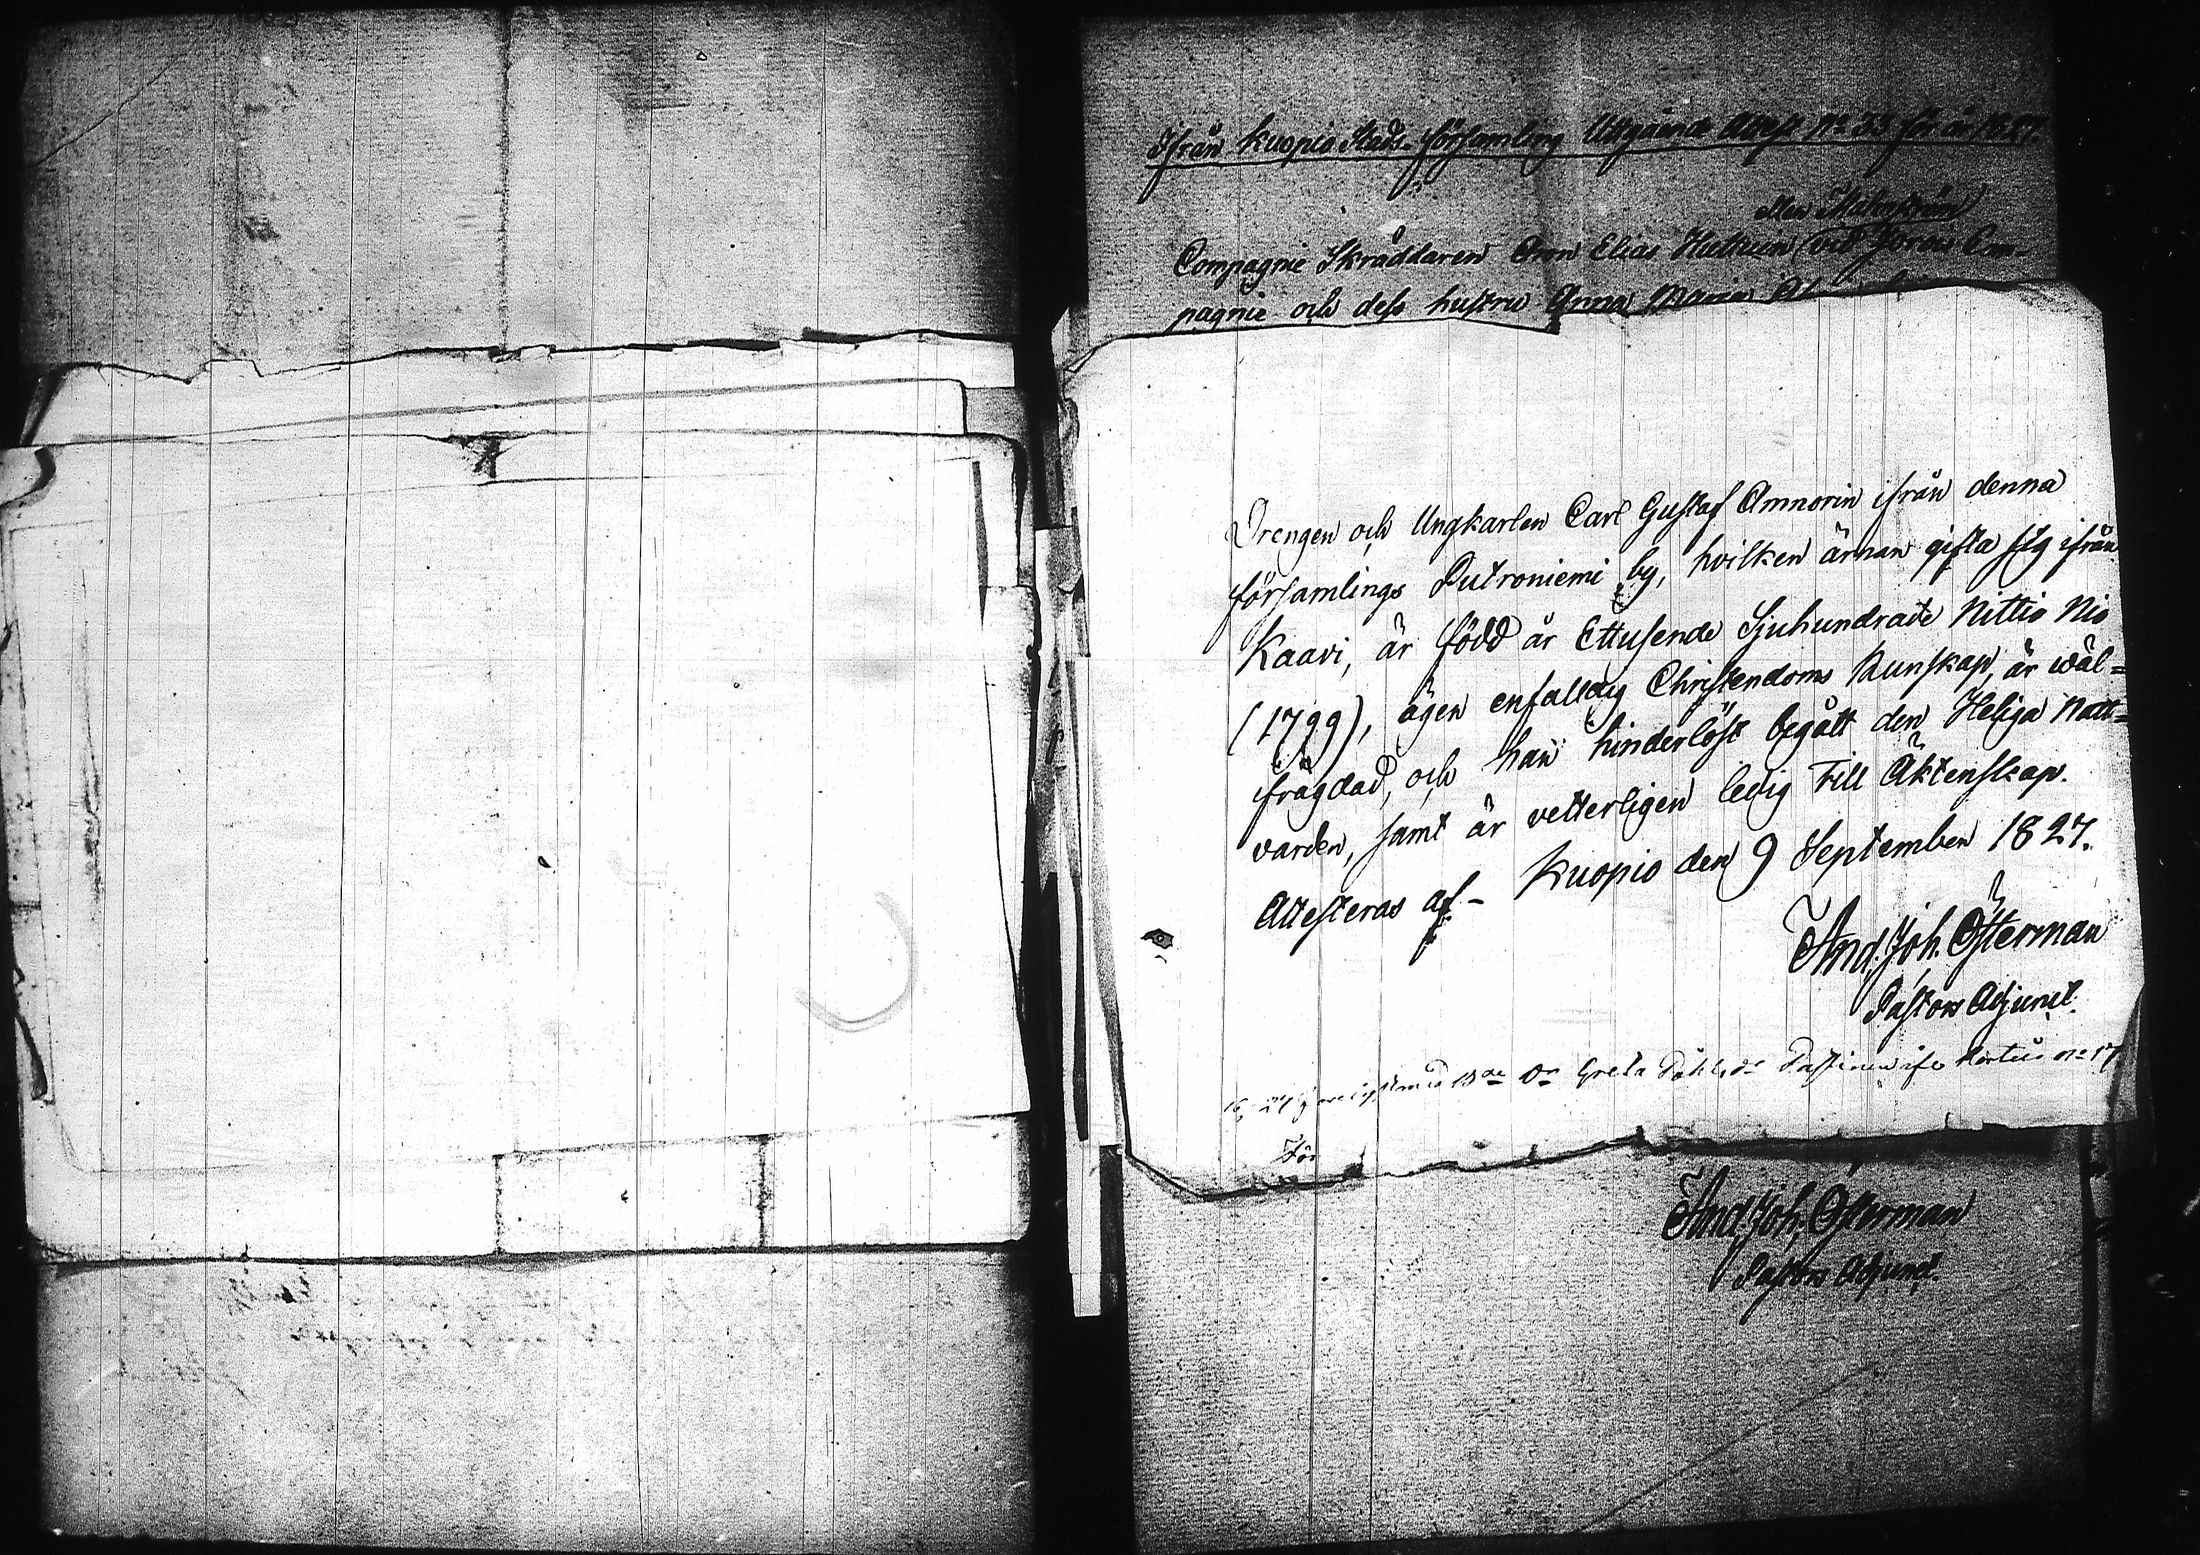 Ifrån Kuopio Stads-församling Utgående Attest No 33 för år 1827.
eller
Compagnie Skräddaren Aron Elias Huttuin (vid Com-
pagnie och dess hustru Anna Maria
Drengen och Ungkarlen Carl Gustaf Amnorin ifrån denna
församlings Putroniemi by, hvilken ärnar gifta sig ifrån
Kaavi, är född år Ettusende Sjuhundrade Nittio Nio
(1799), äger enfaldig Christendoms Kunskap, är wäl=
frägdad, och har hinderlöst begått den Heliga Natt=
varden, samt är vetterligen ledig till Äktenskap.
Attesteras af - Kuopio den 9 September 1827.
And. Joh. Österman
Pastors Adjunct.
Greta
För
And. Joh. Österman
Pastors Adjunct.